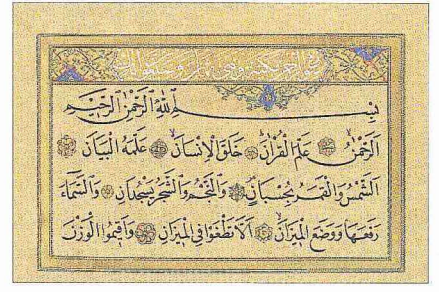 سورة الرحمن مكية وهي ثمان وسبعون آيات
بِسْمِ اللّٰهِ الرَّحْمٰنِ الرَّحِيمِ
الرَّحْمٰنُ عَلَّمَ الْقُرْاٰنَ خَلَقَ الْاِنْسَانَ عَلَّمَهُ الْبَيَانَ
اَلشَّمْسُ وَالْقَمَرُ بِحُسْبَانٍ وَالنَّجْمُ وَالشَّجَرُ يَسْجُدَانِ وَالسَّمَاءَ
رَفَعَهَا وَوَضَعَ الْمِيزَانَ اَلَّا تَطْغَوْا فِي الْمِيزَانِ وَاَقِيمُوا الْوَزْنَ